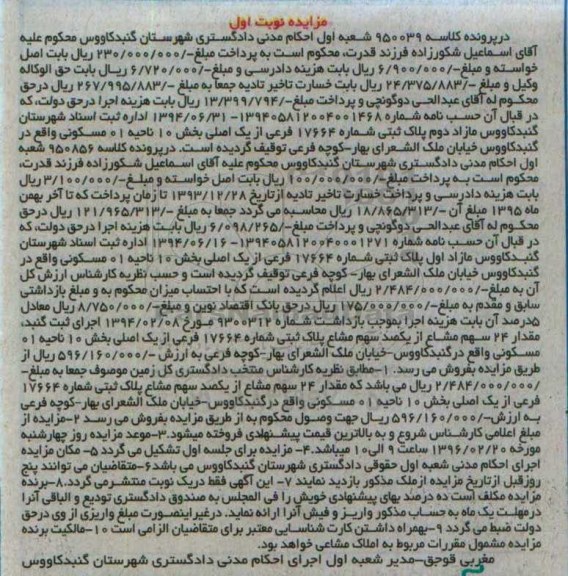 مزایده نوبت اول
درپرونده کلاسه ۹۵۰۰۳۹ شعبه اول احکام مدنی دادگستری شهرستان گنبدکاووس محکوم علیه
آقای اسماعیل شکورزاده فرزند قدرت، محکوم است به پرداخت مبلغ-/۲۳۰/۰۰۰/۰۰۰ ریال بابت اصل
خواسته و مبلغ-/۶/۹۰۰/۰۰۰ ریال بابت هزینه دادرسی و مبلغ-/۶/۷۲۰/۰۰۰ ریال بابت حق الوکاله
وکیل و مبلغ -/۲۴/۳۷۵/۸۸۳ ریال بابت خسارت تاخیر تادیه جمعا به مبلغ -/۲۶۷/۹۹۵/۸۸۳ ریال درحق
محکوم له آقای عبدالحی دوگونچی و پرداخت مبلغ-/۱۳/۳۹۹/۷۹۴ ریال بابت هزینه اجرا درحق دولت، که
در قبال آن حسب نامه شماره ۱۳۹۴۰۵۸۱۲۰۰۴۰۰۱۴۶۸-۱۳۹۴/۰۶/۳۱ اداره ثبت اسناد شهرستان
گنبدکاووس مازاد دوم پلاک ثبتی شماره ۱۷۶۶۴ فرعی از یک اصلی بخش ۱۰ ناحیه ۰۱ مسکونی واقع در
گنبدکاووس خیابان ملک الشعرای بهار-کوچه فرعی توقیف گردیده است. درپرونده کلاسه ۹۵۰۸۵۶ شعبه
اول احکام مدنی دادگستری شهرستان گنبدکاووس محکوم علیه آقای اسماعیل شکورزاده فرزند قدرت،
محکوم است به پرداخت مبلغ-/۱۰۰/۰۰۰/۰۰۰ ریال بابت اصل خواسته و مبلغ-/۳/۱۰۰/۰۰۰ ریال
بابت هزینه دادرسی و پرداخت خسارت تاخیر تادیه ازتاریخ ۱۳۹۳/۱۲/۲۸ تا زمان پرداخت که تا آخر بهمن
ماه ۱۳۹۵ مبلغ آن -/۱۸/۸۶۵/۳۱۳ ریال محاسبه می گردد جمعا به مبلغ -/۱۲۱/۹۶۵/۳۱۳ ریال درحق
محکوم له آقای عبدالحی دوگونچی و پرداخت مبلغ-/۶/۰۹۸/۲۶۵ ریال بابت هزینه اجرا درحق دولت، که
در قبال آن حسب نامه شماره ۱۳۹۴۰۵۸۱۲۰۰۶۴۰۰۰۱۲۷۱-۱۳۹۴/۰۶/۱۶ اداره ثبت اسناد شهرستان
گنبدکاووس مازاد اول پلاک ثبتی شماره ۱۷۶۶۴ فرعی از یک اصلی بخش ۱۰ ناحیه ۰۱ مسکونی واقع در
گنبدکاووس خیابان ملک الشعرای بهار- کوچه فرعی توقیف گردیده است و حسب نظریه کارشناس ارزش کل
آن به مبلغ-/۲/۴۸۴/۰۰۰/۰۰۰ ریال اعلام گردیده است که با احتساب میزان محکوم به و مبلغ بازداشتی
سابق و مقدم به مبلغ-/۱۷۵/۰۰۰/۰۰۰ ریال در حق بانک اقتصاد نوین و مبلغ-/۸/۷۵۰/۰۰۰ ریال معادل
۵درصد آن بابت هزینه اجرا بموجب بازداشت شماره ۹۳۰۰۳۱۲ مورخ ۱۳۹۴/۰۲/۰۸ اجرای ثبت گنبد،
مقدار ۲۴ سهم مشاع از یکصد سهم مشاع پلاک ثبتی شماره ۱۷۶۶۴ فرعی از یک اصلی بخش ۱۰ ناحیه ۰۱
مسکونی واقع درگنبدکاووس-خیابان ملک الشعرای بهار-کوچه فرعی به ارزش -/۵۹۶/۱۶۰/۰۰۰ ریال از
طریق مزایده بفروش می رسد. ۱-مطابق نظریه کارشناس منتخب دادگستری کل زمین موصوف جمعا به مبلغ-
/۲/۴۸۴/۰۰۰/۰۰۰ ریال می باشد که مقدار ۲۴ سهم مشاع از یکصد سهم مشاع پلاک ثبتی شماره ۱۷۶۶۴
فرعی از یک اصلی بخش ۱۰ ناحیه ۰۱ مسکونی واقع درگنبدکاووس-خیابان ملک الشعرای بهار-کوچه فرعی
به ارزش-/۵۹۶/۱۶۰/۰۰۰ ریال جهت وصول محکوم به از طریق مزایده بفروش می رسد ۲-مزایده از
مبلغ اعلامی کارشناس شروع و به بالاترین قیمت پیشنهادی فروخته میشود.۳-موعد مزایده روز چهارشنبه
مورخه ۱۳۹۶/۰۲/۲۰ ساعت ۹ الی۱۰ میباشد.۴- مزایده برای جلسه اول تشکیل می گردد ۵- مکان مزایده
اجرای احکام مدنی شعبه اول حقوقی دادگستری شهرستان گنبدکاووس می باشد۶-متقاضیان می توانند پنج
روزقبل ازتاریخ مزایده ازملک مذکور بازدید نمایند ۷- این آگهی فقط دریک نوبت منتشرمی گردد.۸-برنده
مزایده مکلف است ده درصد بهای پیشنهادی خویش را فی المجلس به صندوق دادگستری تودیع و الباقی آنرا
درمهلت یک ماه به حساب مذکور واریز و فیش آنرا ارائه نماید. درغیراینصورت مبلغ واریزی از وی درحق
دولت ضبط می گردد ۹-بهمراه داشتن کارت شناسایی معتبر برای متقاضیان الزامی است ۱۰-مالکیت برنده
مزایده مشمول مقررات مربوط به املاک مشاعی خواهد بود.
مغربی قوجق-مدیر شعبه اول اجرای احکام مدنی دادگستری شهرستان گنبدکاووس